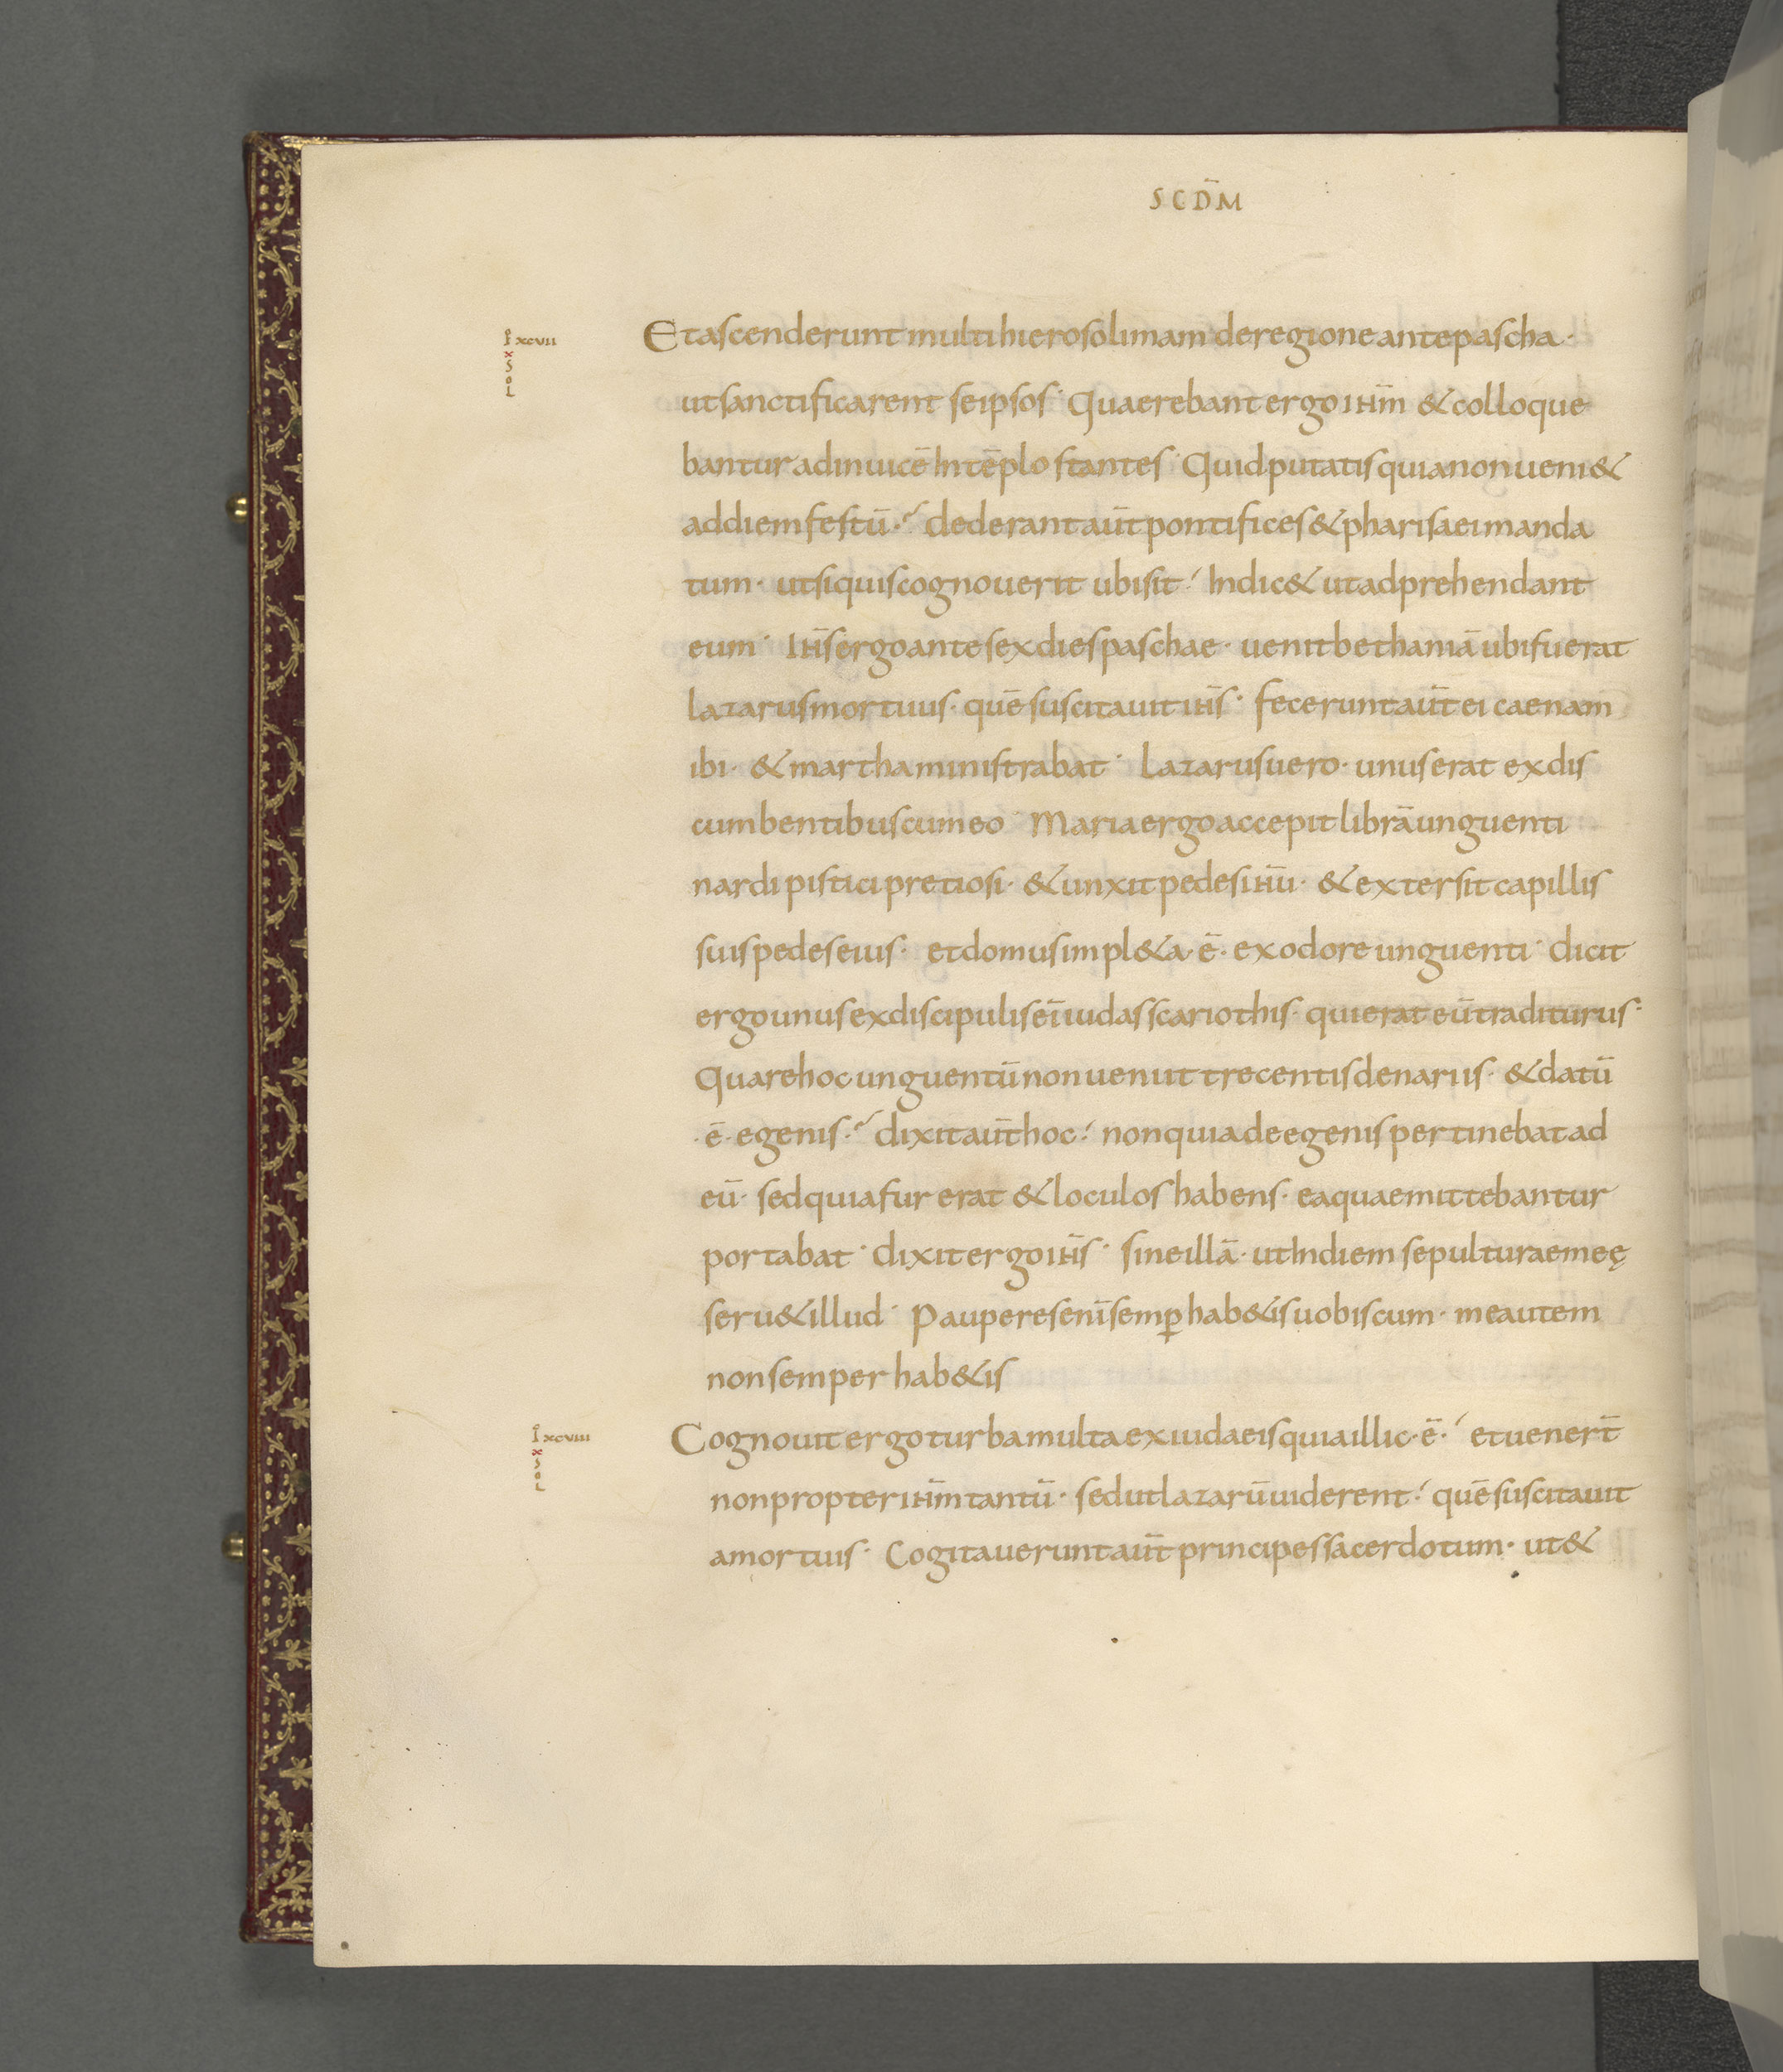 SCD̄M
Et ascenderunt multi hierosolimam de regione ante pascha ·
ut sanctificarent seipsos · Quaerebant ergo ihm̄ & colloque
bantur adinuicē In tēplo stantes · Quid putatis quia non ueni&
ad diem festū · dederant aūt pontifices & pharisaei manda
tum · ut si quis cognouerit ubi sit · Indic& ut adprehendant
eum · Ihs̄ ergo ante sex dies paschae · uenit bethaniā ubi fuerat
lazarus mortuus · quē suscitauit ihs̄ · fecerunt aūt ei caenam
ibi · & martha ministrabat · Lazarus uero · unus erat ex dis
cumbentibus cum eo · Maria ergo accepit librā unguenti
nardi pistici pretiosi · & unxit pedes ihū · & extersit capillis
suis pedes eius · et domus impl&a · ē · ex odore unguenti · dicit
ergo unus ex discipulis eī iudas scariothis · qui erat eū traditurus ·
Quare hoc unguentū non ueniit trecentis denariis · & datū
· ē · egenis · dixit aūt hoc · non quia de egenis pertinebat ad
eū · sed quia fur erat & loculos habens · ea quae mittebantur
portabat · dixit ergo ihs̄ · sine illā · ut In diem sepulturae meę
seru& illud · Pauperes enī semp̲ hab&is uobiscum · me autem
non semper hab&is
Cognouit ergo turba multa ex iudaeis quia illic · ē · et uenert̄
non propter ihm̄ tantū · sed ut lazarū uiderent · quē suscitauit
a mortuis · Cogitauerunt aūt principes sacerdotum · ut &
xcvii
x
sol
xcviii
x
sol